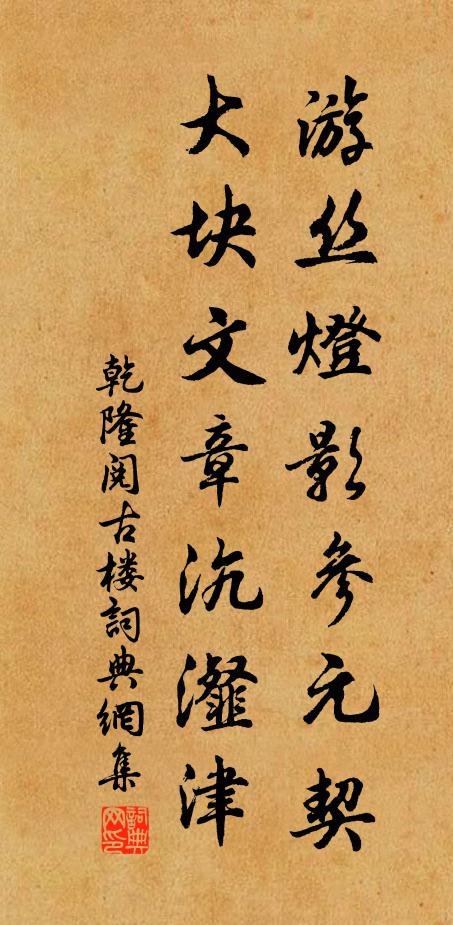 游丝燈影參元契
大块文章沆瀣津
乾隆阅古楼詞典網集
詞典网印